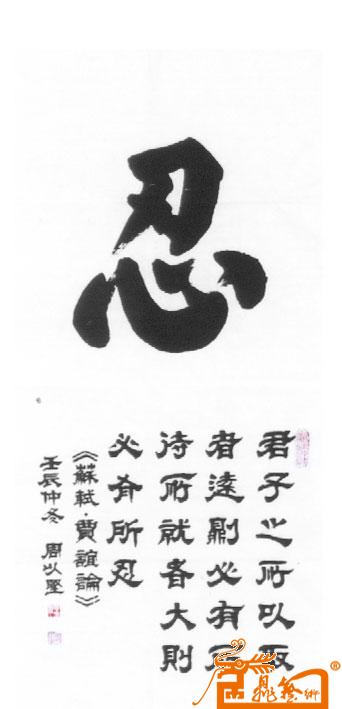 忍
君子之所以取
者遠則必有所
待所就者大則
必有所忍
《蘇軾·賈誼論》
壬辰仲冬 周以